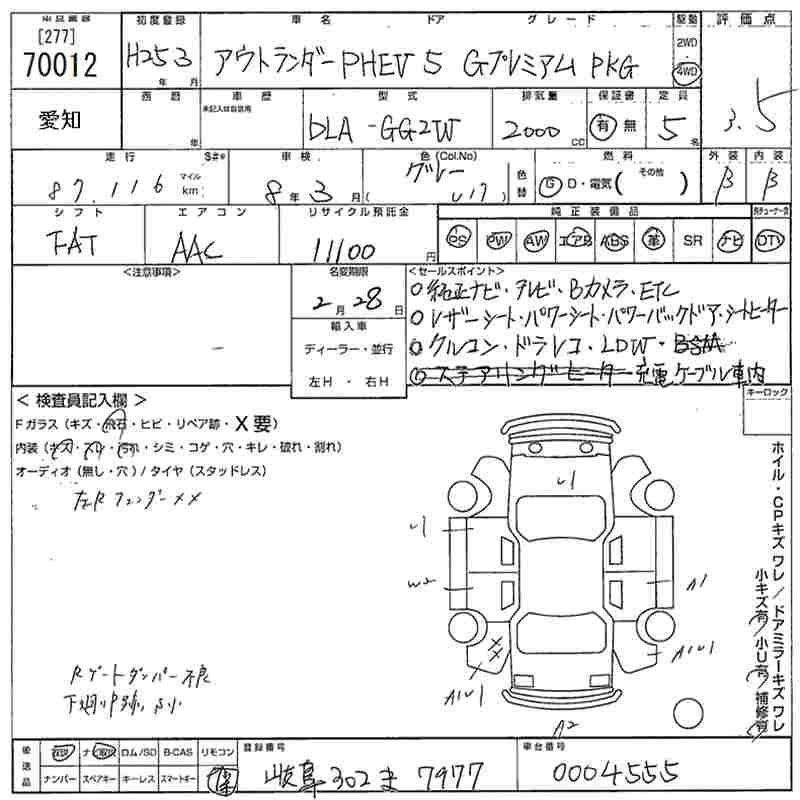 [277]
70012
初度登録 車名 ドア グレード 駆動 評価点
H25 3 年 月
アウトランダーPHEV 5 Gプレミアム PKG
2WD
4WD
3.5
愛知
車歴 型式 排気量 保証書 定員
未記入は自家用
年
DLA-GG2W
2000 cc
有 無
5 名
走行 S#* 車検 色(Col.No) 燃料 外装 内装
87,116 マイル km
8年3月
グレー
( U17 )
色替
G D・電気( その他 )
B B
シフト エアコン リサイクル預託金 純正装備品
FAT AAC 11100 円
PS PW AW エアB ABS 革 SR ナビ DTV
<注意事項>
名変期限
2月28日
輸入車
ディーラー・並行
左H ・ 右H
<セールスポイント>
○純正ナビ・テレビ・Bカメラ・ETC
○レザーシート・パワーシート・パワーバックドア・シートヒーター
○クルコン・ドラレコ・LDW・BSM
○ステアリングヒーター 充電ケーブル車内
キーロック
< 検査員記入欄 >
Fガラス(キズ・飛石・ヒビ・リペア跡・X要)
内装(キズ・スレ・汚れ・シミ・コゲ・穴・キレ・破れ・割れ)
オーディオ(無し・穴)/タイヤ(スタッドレス)
左Rフェンダー××
U1
U1
W2
A1
A1U1
A1U1
A2
Rゲートダンパー不良
ホイル・CPキズ ワレ/ドアミラーキズ ワレ
小キズ有/小U有/補修有
後送品
取説 ナビ取説 ロム/SD B-CAS リモコン
ナンバー スペアキー キーレス スマートキー
登録番号
岐阜 302 ま 7977
車台番号
0004555